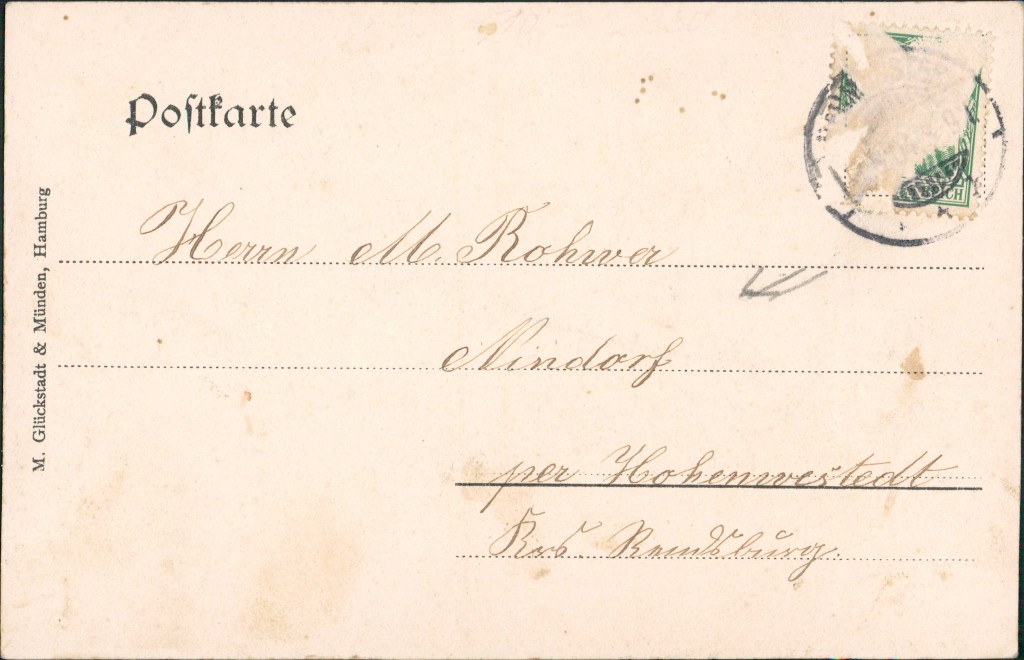 Postkarte
Herrn M. Rohwer
Nindorf
per Hohenwestedt
Krs. Rendsburg.
M. Glückstadt & Münden, Hamburg